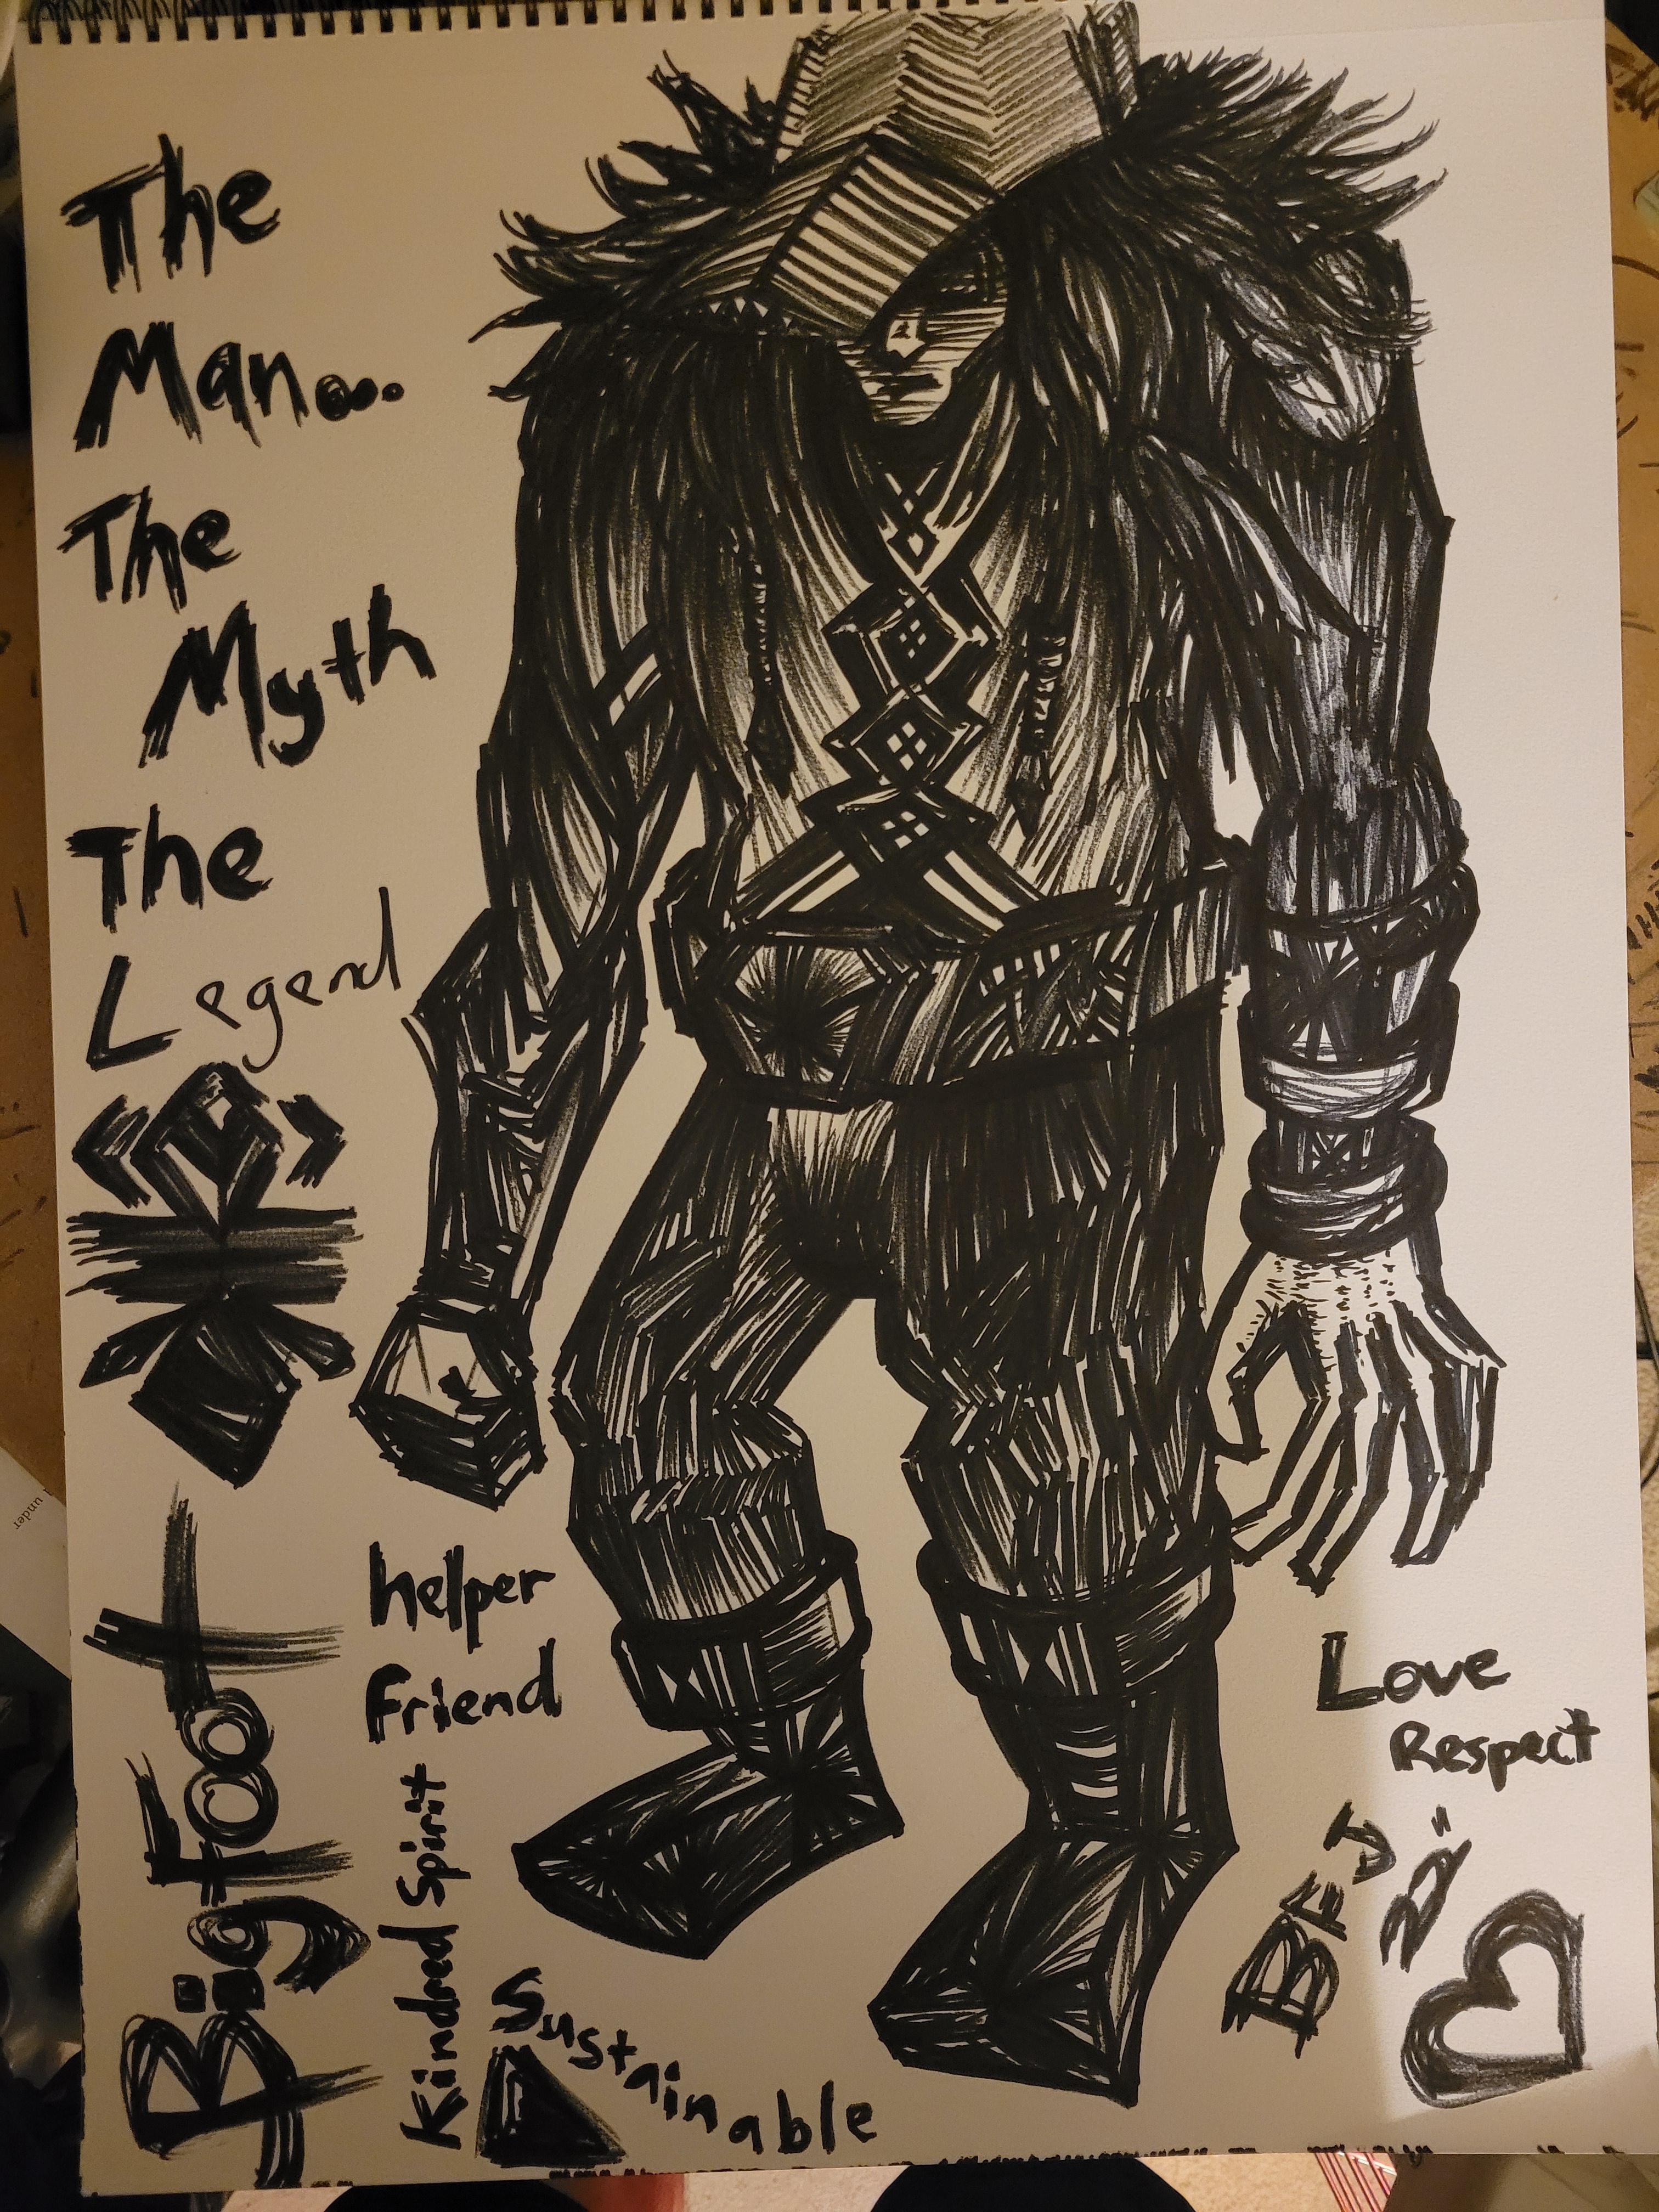 The
Man...
The
Myth
The
Legend
BigFoot
helper
Friend
Kindred Spirit
Sustainable
Love
Respect
BFJ
22"
under